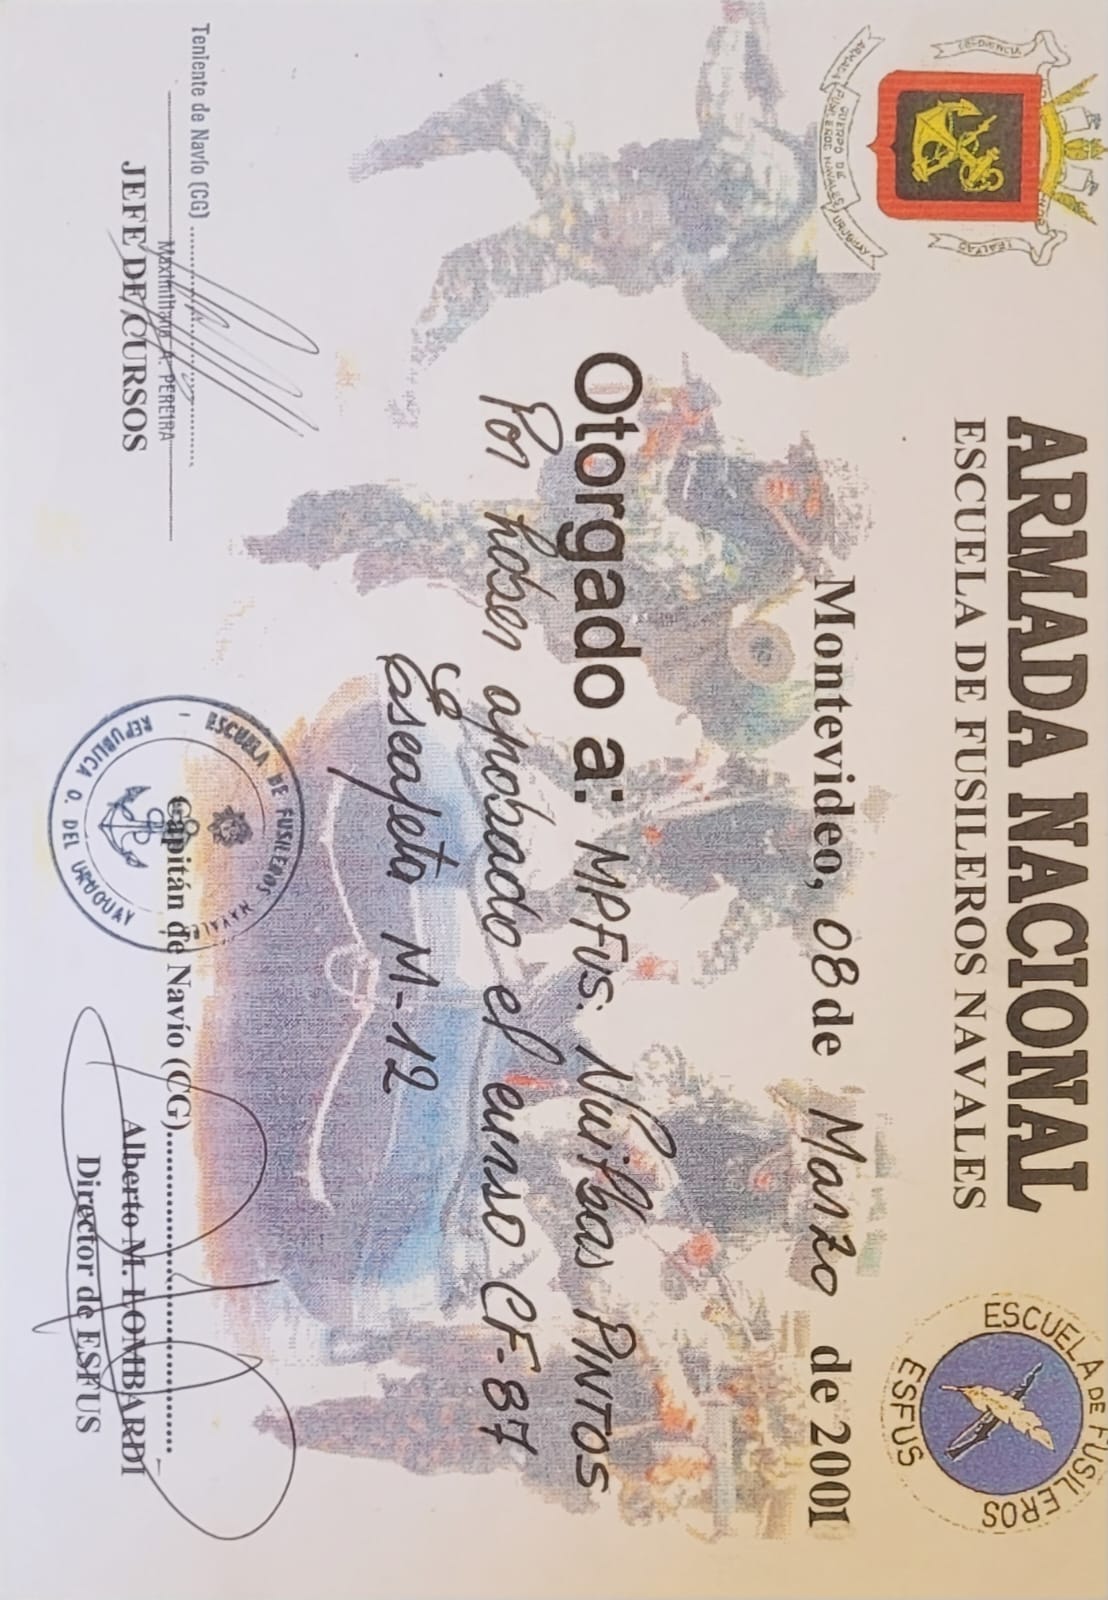 ARMADA NACIONAL
ESCUELA DE FUSILEROS NAVALES
ARMADA
CUERPO DE FUSILEROS NAVALES
URUGUAY
ESCUELA DE FUSILEROS
ESFUS
Montevideo, 08 de Marzo de 2001
Otorgado a: MPFUS: Nuilbas PINTOS
Por haber aprobado el curso CF-87
Escafeta M-12
Teniente de Navío (CG)
Maximiliano A. PEREIRA
JEFE DE CURSOS
ESCUELA DE FUSILEROS NAVALES
REPUBLICA O. DEL URUGUAY
Capitán de Navío (CG)
Alberto M. LOMBARDI
Director de ESFUS